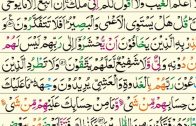 أَعْلَمُ الْغَيْبَ وَلَا أَقُولُ لَكُمْ إِنِّي مَلَكٌ إِنْ أَتَّبِعُ إِلَّا مَا يُوحَى
قُلْ هَلْ يَسْتَوِي الْأَعْمَى وَالْبَصِيرُ أَفَلَا تَتَفَكَّرُونَ
بِهِ الَّذِينَ يَخَافُونَ أَنْ يُحْشَرُوا إِلَى رَبِّهِمْ لَيْسَ لَهُمْ
دُونِهِ وَلِيٌّ وَلَا شَفِيعٌ لَعَلَّهُمْ يَتَّقُونَ وَلَا تَطْرُدِ الَّذِينَ
رَبَّهُمْ بِالْغَدَاةِ وَالْعَشِيِّ يُرِيدُونَ وَجْهَهُ مَا عَلَيْكَ
حِسَابِهِمْ مِنْ شَيْءٍ وَمَا مِنْ حِسَابِكَ عَلَيْهِمْ مِنْ شَيْءٍ